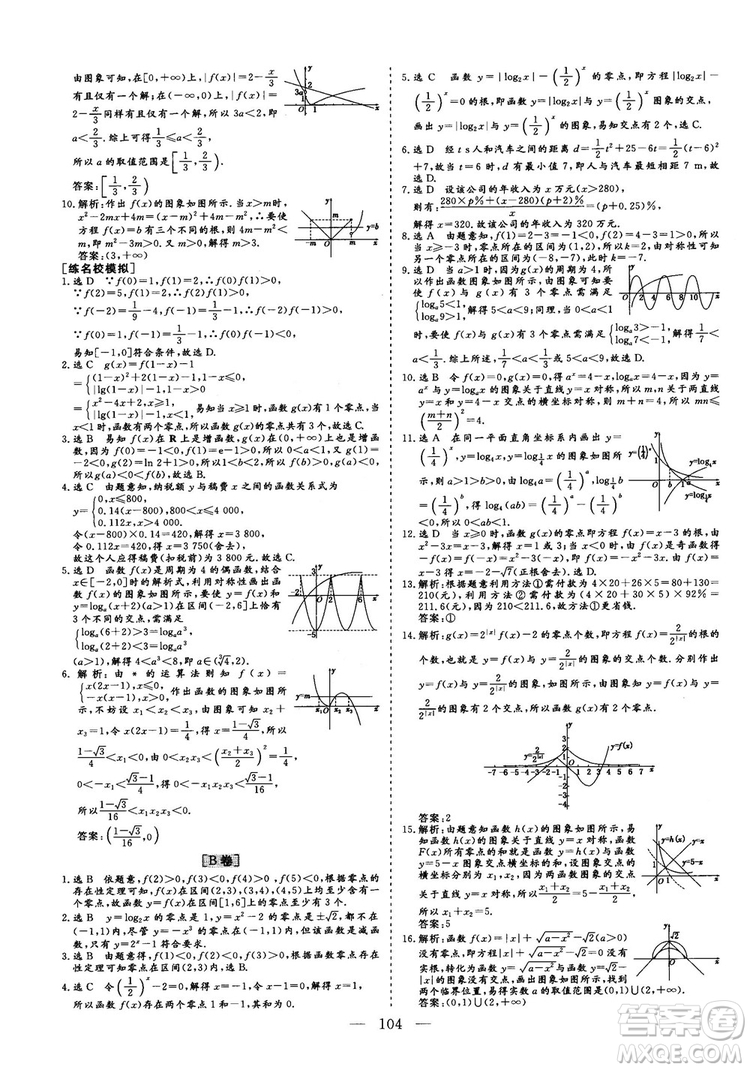 由图象可知,在[0,+∞)上,|f(x)|=2-x/3
有且仅有一个解;在(-∞,0)上,|f(x)|=
2-x/3同样有且仅有一个解,所以3a<2,即
a<2/3.综上可得1/3≤a<2/3.
所以a的取值范围是[1/3,2/3).
答案:[1/3,2/3)
10.解析:作出f(x)的图象如图所示.当x>m时,
x²-2mx+4m=(x-m)²+4m-m²,∴要使
方程f(x)=b有三个不同的根,则有4m-m²
<m,即m²-3m>0.又m>0,解得m>3.
答案:(3,+∞)
[练名校模拟]
1.选D ∵f(0)=1,f(2)=1,∴f(0)f(2)=1>0;
∵f(2)=5,f(1)=2,∴f(2)f(1)=10>0;
∵f(-2)=1/9-4,f(-1)=1/3-1,∴f(-2)f(-1)>0;
∵f(0)=1,f(-1)=1/3-1,∴f(0)f(-1)<0,
易知[-1,0]符合条件,故选D.
2.选C g(x)=f(x)-1
={(1-x²)-1,x<1
|lg(1-x)|-1,
={x²-4x+2,x≥1
|lg(1-x)|-1,x<1. 易知当x≥1时,函数g(x)有1个零点,当
x<1时,函数有2个零点,所以函数的零点共有3个,故选C.
3.选B 易知函数f(x)在R上是增函数,g(x)在(0,+∞)上也是增函
数,因为f(0)=-1<0,f(1)=e-1>0,所以0<a<1;又g(1)=
-2<0,g(2)=ln 2+1>0,所以1<b<2,所以f(b)>0,g(a)<0,故选B.
4.选C 由题意知,纳税额y与稿费x之间的函数关系式为
y={0,x≤800,
0.14(x-800),800<x≤4 000,
0.112x,x>4 000.
令(x-800)×0.14=420,解得x=3 800,
令0.112x=420,得x=3 750(舍去).
故这个人应得稿费(扣税前)为3 800元.故选C.
5.选D 函数f(x)是周期为4的偶函数,给出
x∈[-2,0]时的解析式,利用对称性画出函
数f(x)的图象,要使函数y=f(x)和
y=logₐ(x+2)(a>1)在区间(-2,6]内恰有3
个零点,如图所示,则
{logₐ(6+2)>3⇒logₐ8>logₐa³,
logₐ(2+2)<3⇒logₐ4<logₐa³
(a>1),解得∛4<a<2,即a∈(∛4,2).
6.解析:由*的运算法则知f(x)=
{x(2x-1),x≤0,
-x(x-1),x>0. 作出函数图象如图所
示,不妨设x₁<x₂<x₃,由图象可知x₂+
x₃=1,0<x₂x₃<1/4,令x(2x-1)=1/4,得
(1-√3)/4<x₁<0,又0<x₂x₃<((x₂+x₃)/2)²=1/4,所以
0<-x₁<(√3-1)/4,所以0<-x₁x₂x₃<(√3-1)/16,
所以(1-√3)/16<x₁x₂x₃<0.
答案:((1-√3)/16,0)
[B卷]
1.选B 依题意,f(2)>0,f(3)<0,f(4)>0,f(5)<0,根据零点的
存在性定理可知,f(x)在区间(2,3),(3,4),(4,5)内均至少含有一
个零点,故函数f(x)在区间[1,6]上的零点至少有3个.
2.选B y=log₂x的零点是1,y=x²-2的零点是±√2,都不在
(-1,1)内,尽管y=-x²的零点是0∈(-1,1),但是它在(-1,1)
内不是单调函数,只有y=2ˣ-1符合要求.
3.选B 由题意,函数f(x)单调递增,且f(1)<0,f(2)>0,根据零点的
存在性定理知,零点在区间(1,2)内.
4.选C 令(1/2)ˣ-2=0,解得x=-1,令x-1=0,解得x=1,
所以函数f(x)存在两个零点1和-1,故选C.
5.选C 函数y=|log₂x|-(1/2)ˣ的零点,即方程|log₂x|-
(1/2)ˣ=0的根,即函数y=|log₂x|与y=(1/2)ˣ图象的交点,
画出y=|log₂x|与y=(1/2)ˣ的图象,易知交点有2个.
6.选D 经过t s人和汽车之间的距离d=1/2t²+25-6t=1/2(t-6)²
+7,故当t=6时,d有最小值7,即人与汽车最少相距7 m,故
选D.
7.选D 设该公司的年收入为x万元(x>280),
则有:(280×p%+(x-280)(p+2)%)/x=(p+0.25)%,
解得x=320.故该公司的年收入为320万元.
8.选D 由题意知,当x>1时,f(x)单调递减,因为f(3)=1-ln2
>0,f(4)=2-3=-1<0,零点所在的区间为(3,4),由对称性可知
另一个零点所在区间为(-2,-1),所以k=-2或k=3.
9.选C 由题意知,因为g(x)的周期为4,所
以作出函数图象如图所示,当a>1时,
要使f(x)与g(x)有3个零点需满足
{logₐ5<1,
logₐ9>1. 解得5<a<9;当0<a<1时,
要使f(x)与g(x)有3个零点需满足{logₐ3>-1,
logₐ7<-1.
解得1/7<a<1/3.综上所述,选C.
10.选B 令f(x)=0,得aˣ=4-x,令g(x)=0,得logₐx=4-x,因为y=
aˣ与y=logₐx的图象关于直线y=x对称,所以m,n为两直线
y=x与y=4-x的交点的横坐标对称,则m+n=4,所以mn≤
((m+n)/2)²=4.
11.选A 在同一平面直角坐标系内画出
y=(1/4)ˣ,y=log₄x,y=log_{1/4}x的图
象,如图所示,由log₄a=(1/4)ᵃ,log_{1/4}b
=(1/4)ᵇ,得0<(1/4)ᵃ<(1/4)ᵇ,所以
0<log₄a<log_{1/4}b=-log₄b,
即log₄(ab)<0,所以0<ab<1,故选A.
12.选D 当x≥0时,函数g(x)的零点即方程f(x)=x-3的根,由
x²-3x=x-3,解得x=1或3;当x<0时,由f(x)是奇函数得
-f(x)=f(-x)=x²-3(-x),即f(x)=-x²-3x.由f(x)=
x-3得x=-2-√7(正根舍去),故选D.
13.解析:根据题意利用方法①需付款为4×20+26×5=80+130=
210(元),利用方法②需付款为(4×20+30×5)×92%=
211.6(元),因为210<211.6,故方法①更为省钱.
答案:①
14.解析:g(x)=2^|x|f(x)-2的零点个数,即方程f(x)=2/2^|x|的根
的个数,也是y=f(x)与y=2/2^|x|的图象的交点个数.分别作出
y=f(x)与y=2/2^|x|的图象,如图所示,由图象可得y=f(x)与y=
2/2^|x|的图象有2个交点,所以函数g(x)有2个零点.
答案:2
15.解析:由题意知函数h(x)的图象如图所示,
易知函数h(x)的图象关于直线y=x对称,函数
F(x)所有零点的和就是函数y=h(x)与函数
y=5-x图象交点横坐标的和,设图象交点的横坐
标分别为x₁,x₂,因为两函数图象的交点
关于直线y=x对称,所以(x₁+x₂)/2=5-(x₁+x₂)/2,
所以x₁+x₂=5.
答案:5
16.解析:函数f(x)=|x|+√(a-x²)-√2(a>0)
没有零点,即方程√(a-x²)=√2-|x|(a>0)
没有实根,转化为函数y=√(a-x²)与函数
y=√2-|x|的图象没有交点,在同一坐标系中作出它
们的图象如图所示,由图可知两个
图象没有公共点,可知实数a的取值范围为
(0,1)∪(2,+∞).
答案:(0,1)∪(2,+∞)
104
答案圈